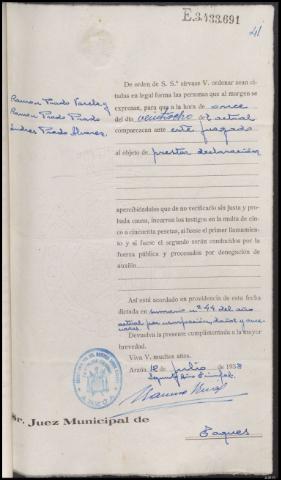 E.3.133.691
41
De orden de S. S.ª sírvase V. ordenar sean ci-
tadas en legal forma las personas que al margen se
expresan, para que a la hora de once
del día veintiocho del actual
comparezcan ante este juzgado
al objeto de prestar declaración
Ramon Prado Varela y
Ramon Prado Prado
Andres Prado Alvarez.
apercibiéndoles que de no verificarlo sin justa y pro-
bada causa, incurren los testigos en la multa de cin-
co a cincuenta pesetas, si fuese el primer llamamien-
to y si fuese el segundo serán conducidos por la
fuerza pública y procesados por denegación de
auxilio
Así está acordado en providencia de esta fecha
dictada en sumario nº 44 del año
actual por usurpación, daños y
Devuelva la presente cumplimentada a la mayor
brevedad.
Viva V. muchos años.
Arzúa 12 de julio de 1938
Sr. Juez Municipal de